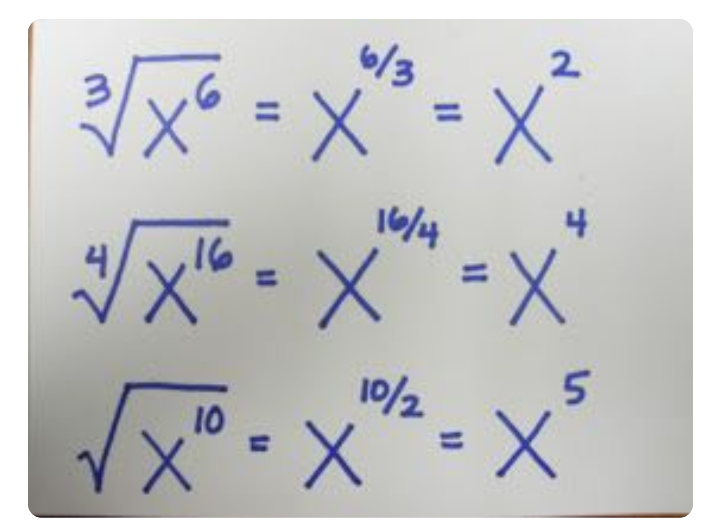 ∛x⁶ = x^6/3 = x²
∜x¹⁶ = x^16/4 = x⁴
√x¹⁰ = x^10/2 = x⁵